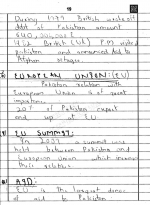 19
During 1999 British wrote off
debt of Pakistan amount
British (UK) P.M visited
Pakistan and announced aid to
Afghan refugee.
EUROPEAN UNION: (EU)
Pakistan relation with
European Union is of great
importance.
20% of Pakistan export
end up at EU
EU SUMMIT:
In 2009 a summit was
held between Pakistan and
European Union which
their relation.
AID:
EU is the largest donor
of aid to Pakistan